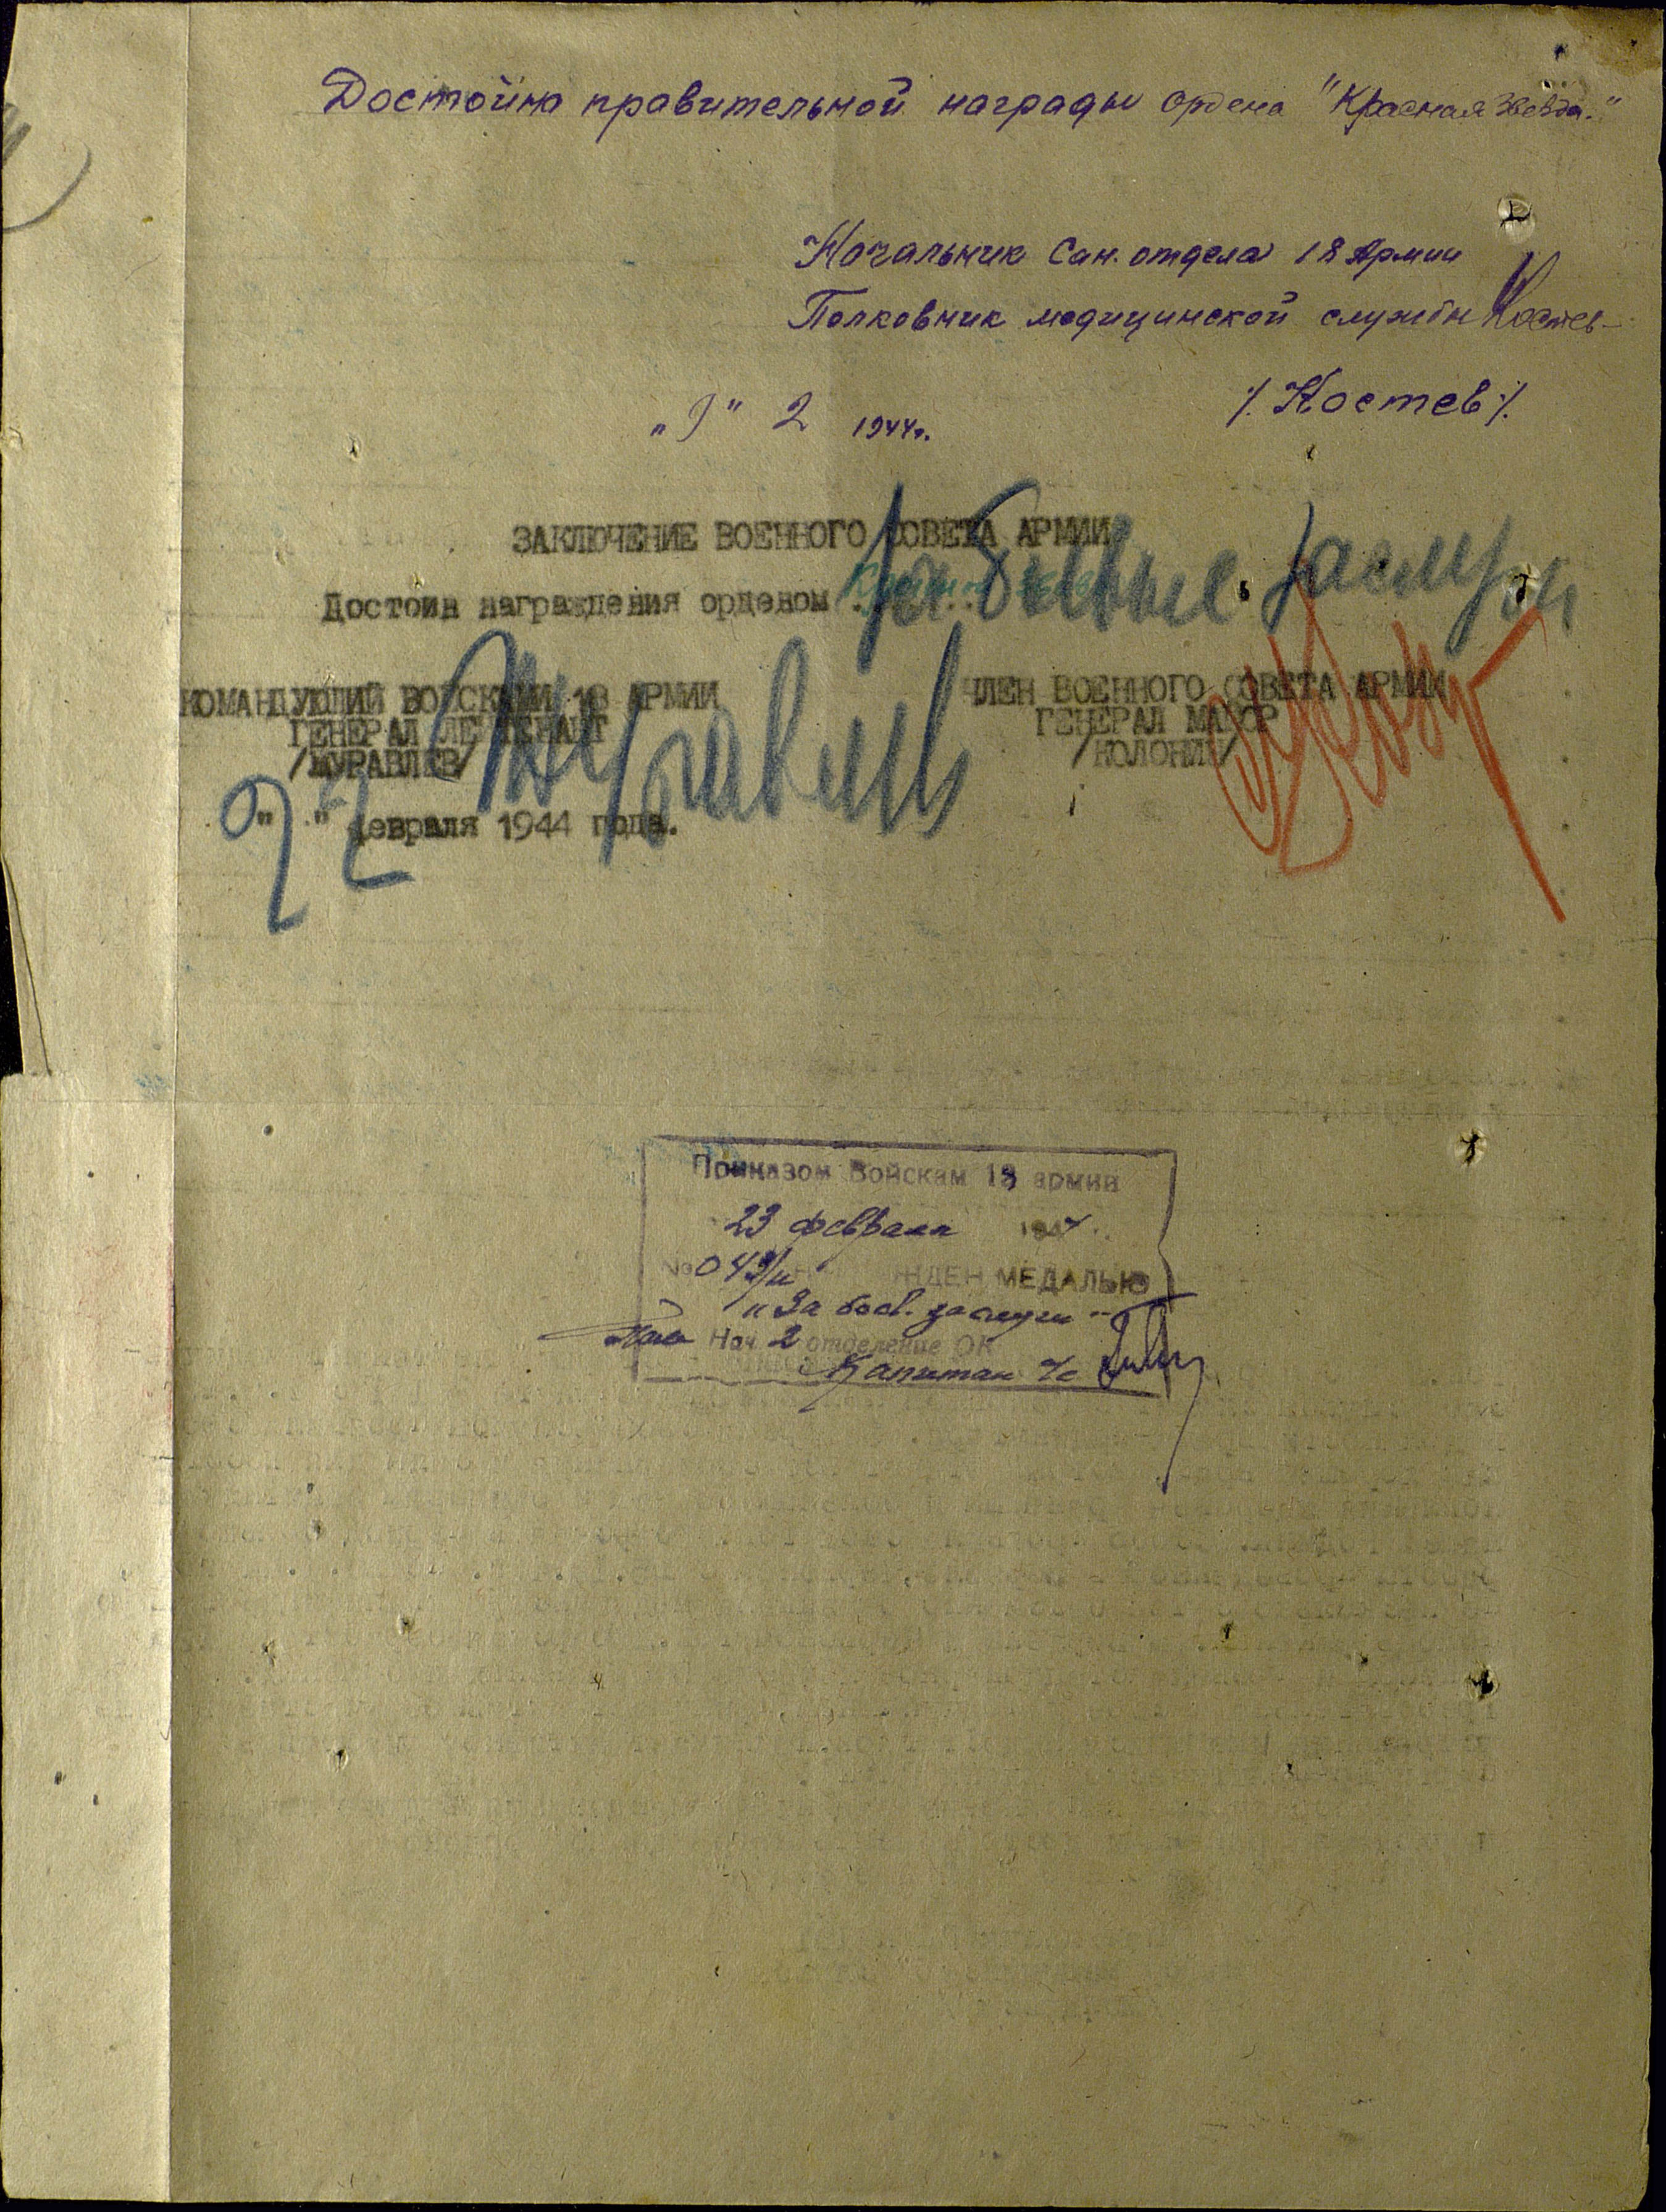 Достойна правительной награды ордена "Красная Звезда."
Начальник Сан. отдела 18 Армии
Полковник медицинской службы Костев
/. Костев ./
" 9 " 2 1944г.
ЗАКЛЮЧЕНИЕ ВОЕННОГО СОВЕТА АРМИИ
Достоин награждения орденом
За боевые заслуги
КОМАНДУЮЩИЙ ВОЙСКАМИ 18 АРМИИ
ГЕНЕРАЛ ЛЕЙТЕНАНТ
/ЖУРАВЛЕВ/
Журавлев
ЧЛЕН ВОЕННОГО СОВЕТА АРМИИ
ГЕНЕРАЛ МАЙОР
/КОЛОНИН/
"22" февраля 1944 года.
Приказом Войскам 18 армии
23 февраля 1944
№ 049/н НАГРАЖДЕН МЕДАЛЬЮ
"За боев. заслуги"
Нач. 2 отделение ОК
Капитан